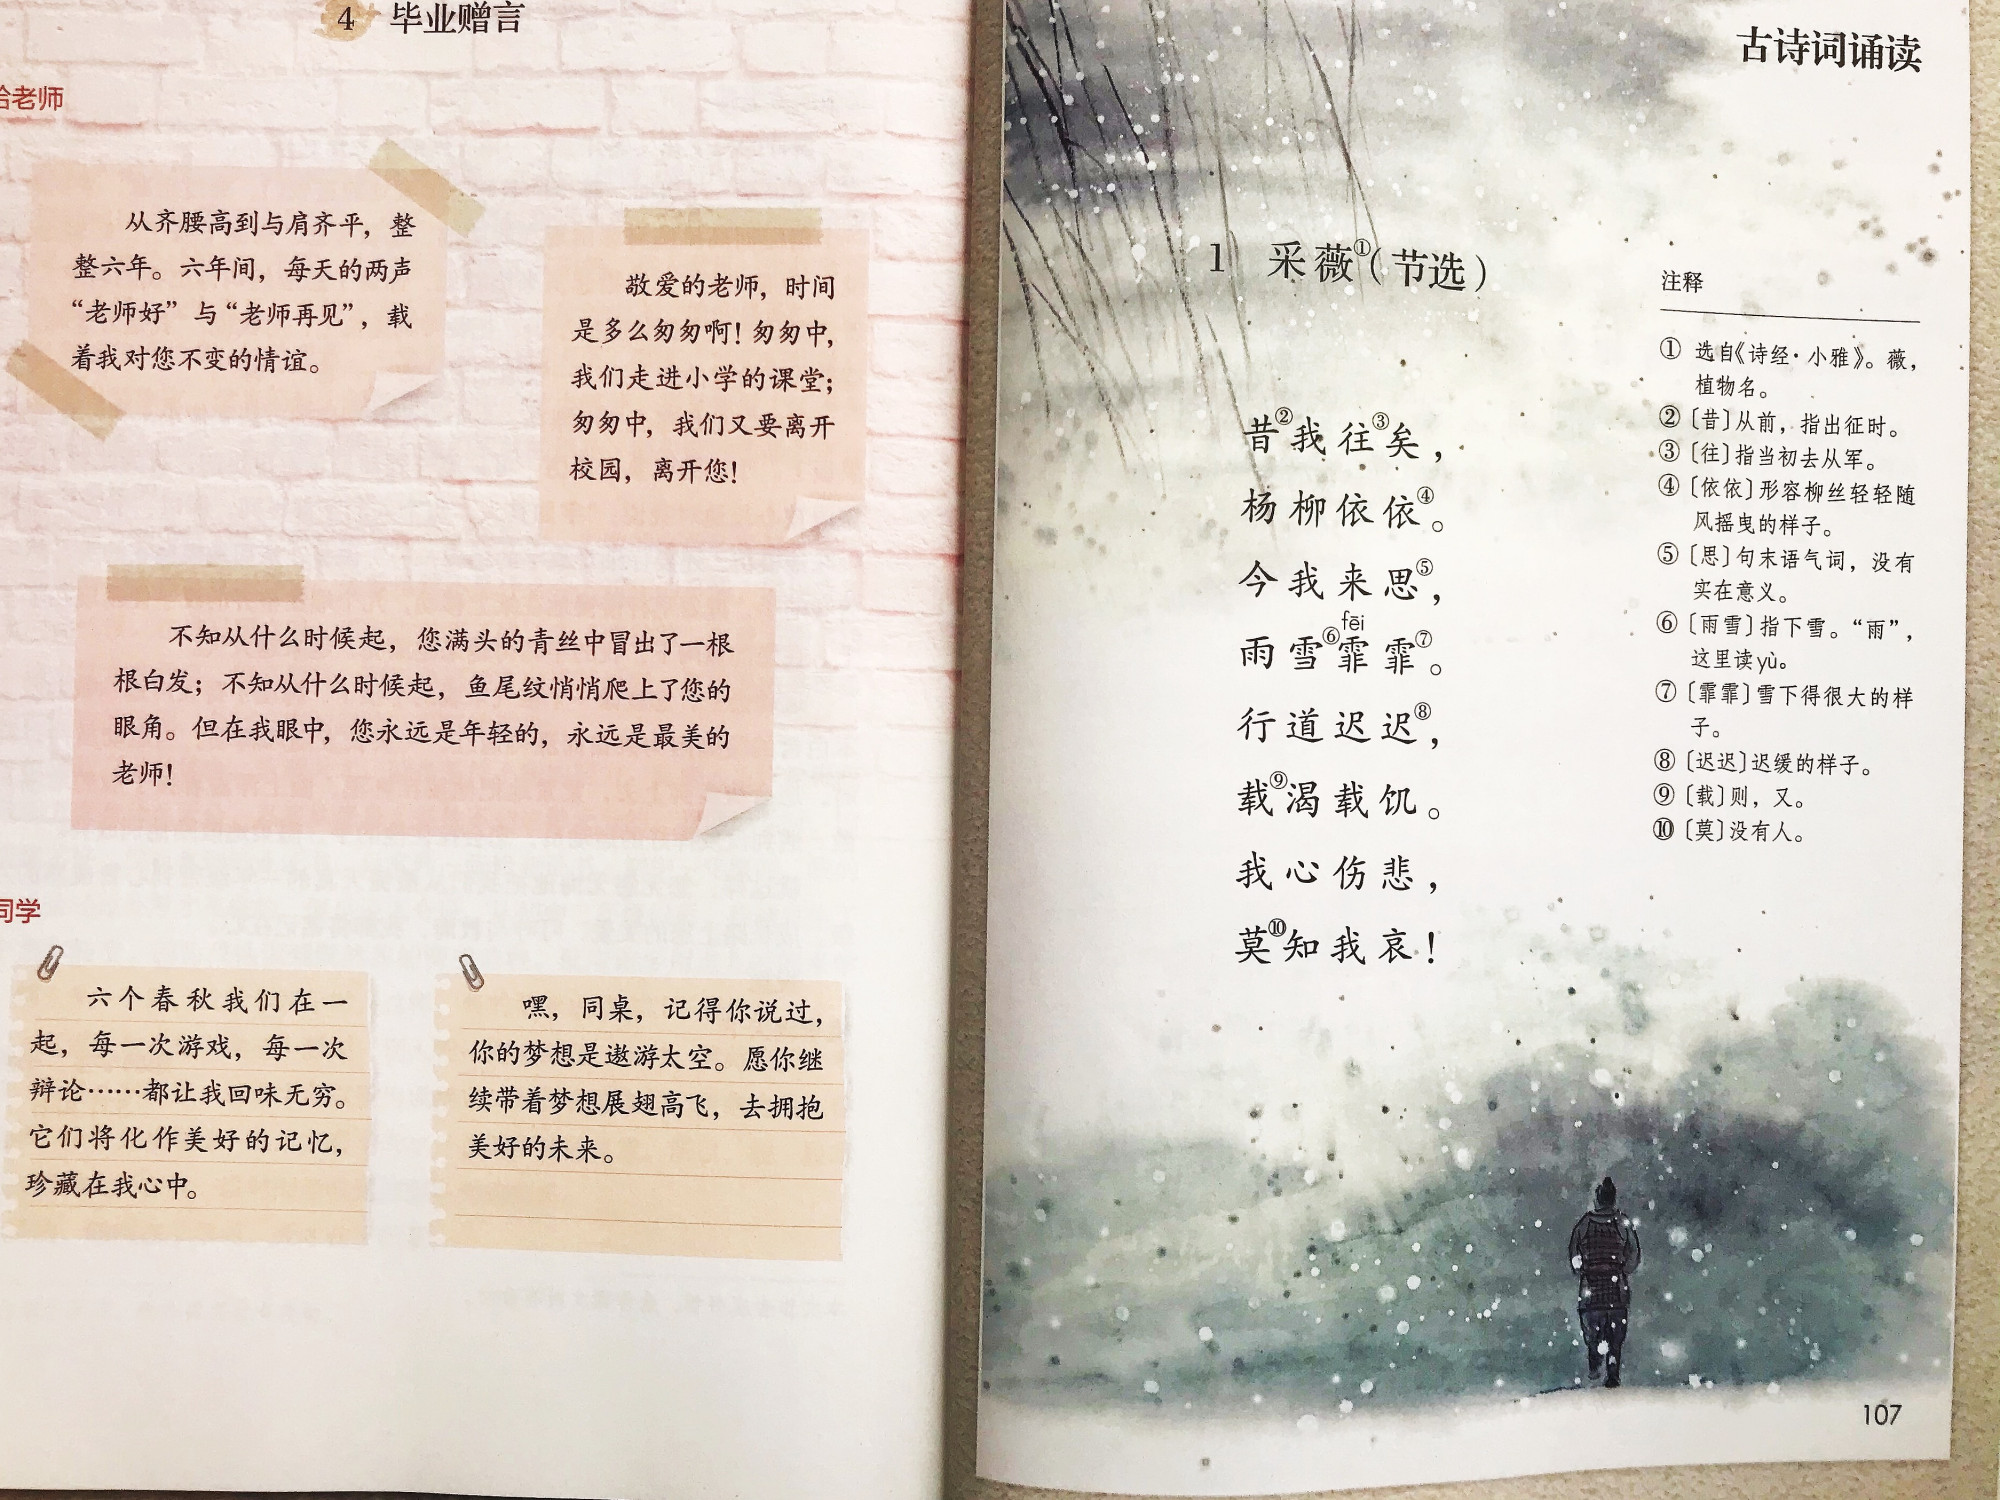 4 毕业赠言
给老师
从齐腰高到与肩齐平，整
整六年。六年间，每天的两声
“老师好”与“老师再见”，载
着我对您不变的情谊。
敬爱的老师，时间
是多么匆匆啊！匆匆中，
我们走进小学的课堂；
匆匆中，我们又要离开
校园，离开您！
不知从什么时候起，您满头的青丝中冒出了一根
根白发；不知从什么时候起，鱼尾纹悄悄爬上了您的
眼角。但在我眼中，您永远是年轻的，永远是最美的
老师！
同学
六个春秋我们在一
起，每一次游戏，每一次
辩论……都让我回味无穷。
它们将化作美好的记忆，
珍藏在我心中。
嘿，同桌，记得你说过，
你的梦想是遨游太空。愿你继
续带着梦想展翅高飞，去拥抱
美好的未来。
古诗词诵读
1 采薇①（节选）
昔②我往③矣，
杨柳依依④。
今我来思⑤，
fēi
雨雪⑥霏霏⑦。
行道迟迟⑧，
载⑨渴载饥。
我心伤悲，
莫⑩知我哀！
注释
① 选自《诗经·小雅》。薇，
植物名。
②〔昔〕从前，指出征时。
③〔往〕指当初去从军。
④〔依依〕形容柳丝轻轻随
风摇曳的样子。
⑤〔思〕句末语气词，没有
实在意义。
⑥〔雨雪〕指下雪。“雨”，
这里读yù。
⑦〔霏霏〕雪下得很大的样
子。
⑧〔迟迟〕迟缓的样子。
⑨〔载〕则，又。
⑩〔莫〕没有人。
107